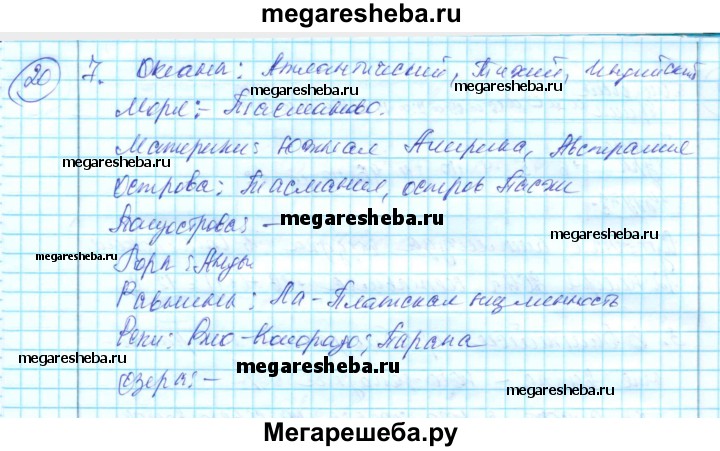 megaresheba.ru
20 7. Океаны: Атлантический, Тихий, Индийский
Моря: - Тасманово.
megaresheba.ru megaresheba.ru
Материки: Южная Америка, Австралия
megaresheba.ru
Острова: Тасмания, остров Пасхи
Полуострова: -
megaresheba.ru
Горы: Анды
Равнины: Ла-Платская низменность
megaresheba.ru
Реки: Рио-Колорадо; Парана
megaresheba.ru
megaresheba.ru
Озера: -
megaresheba.ru
Мегарешеба.ру